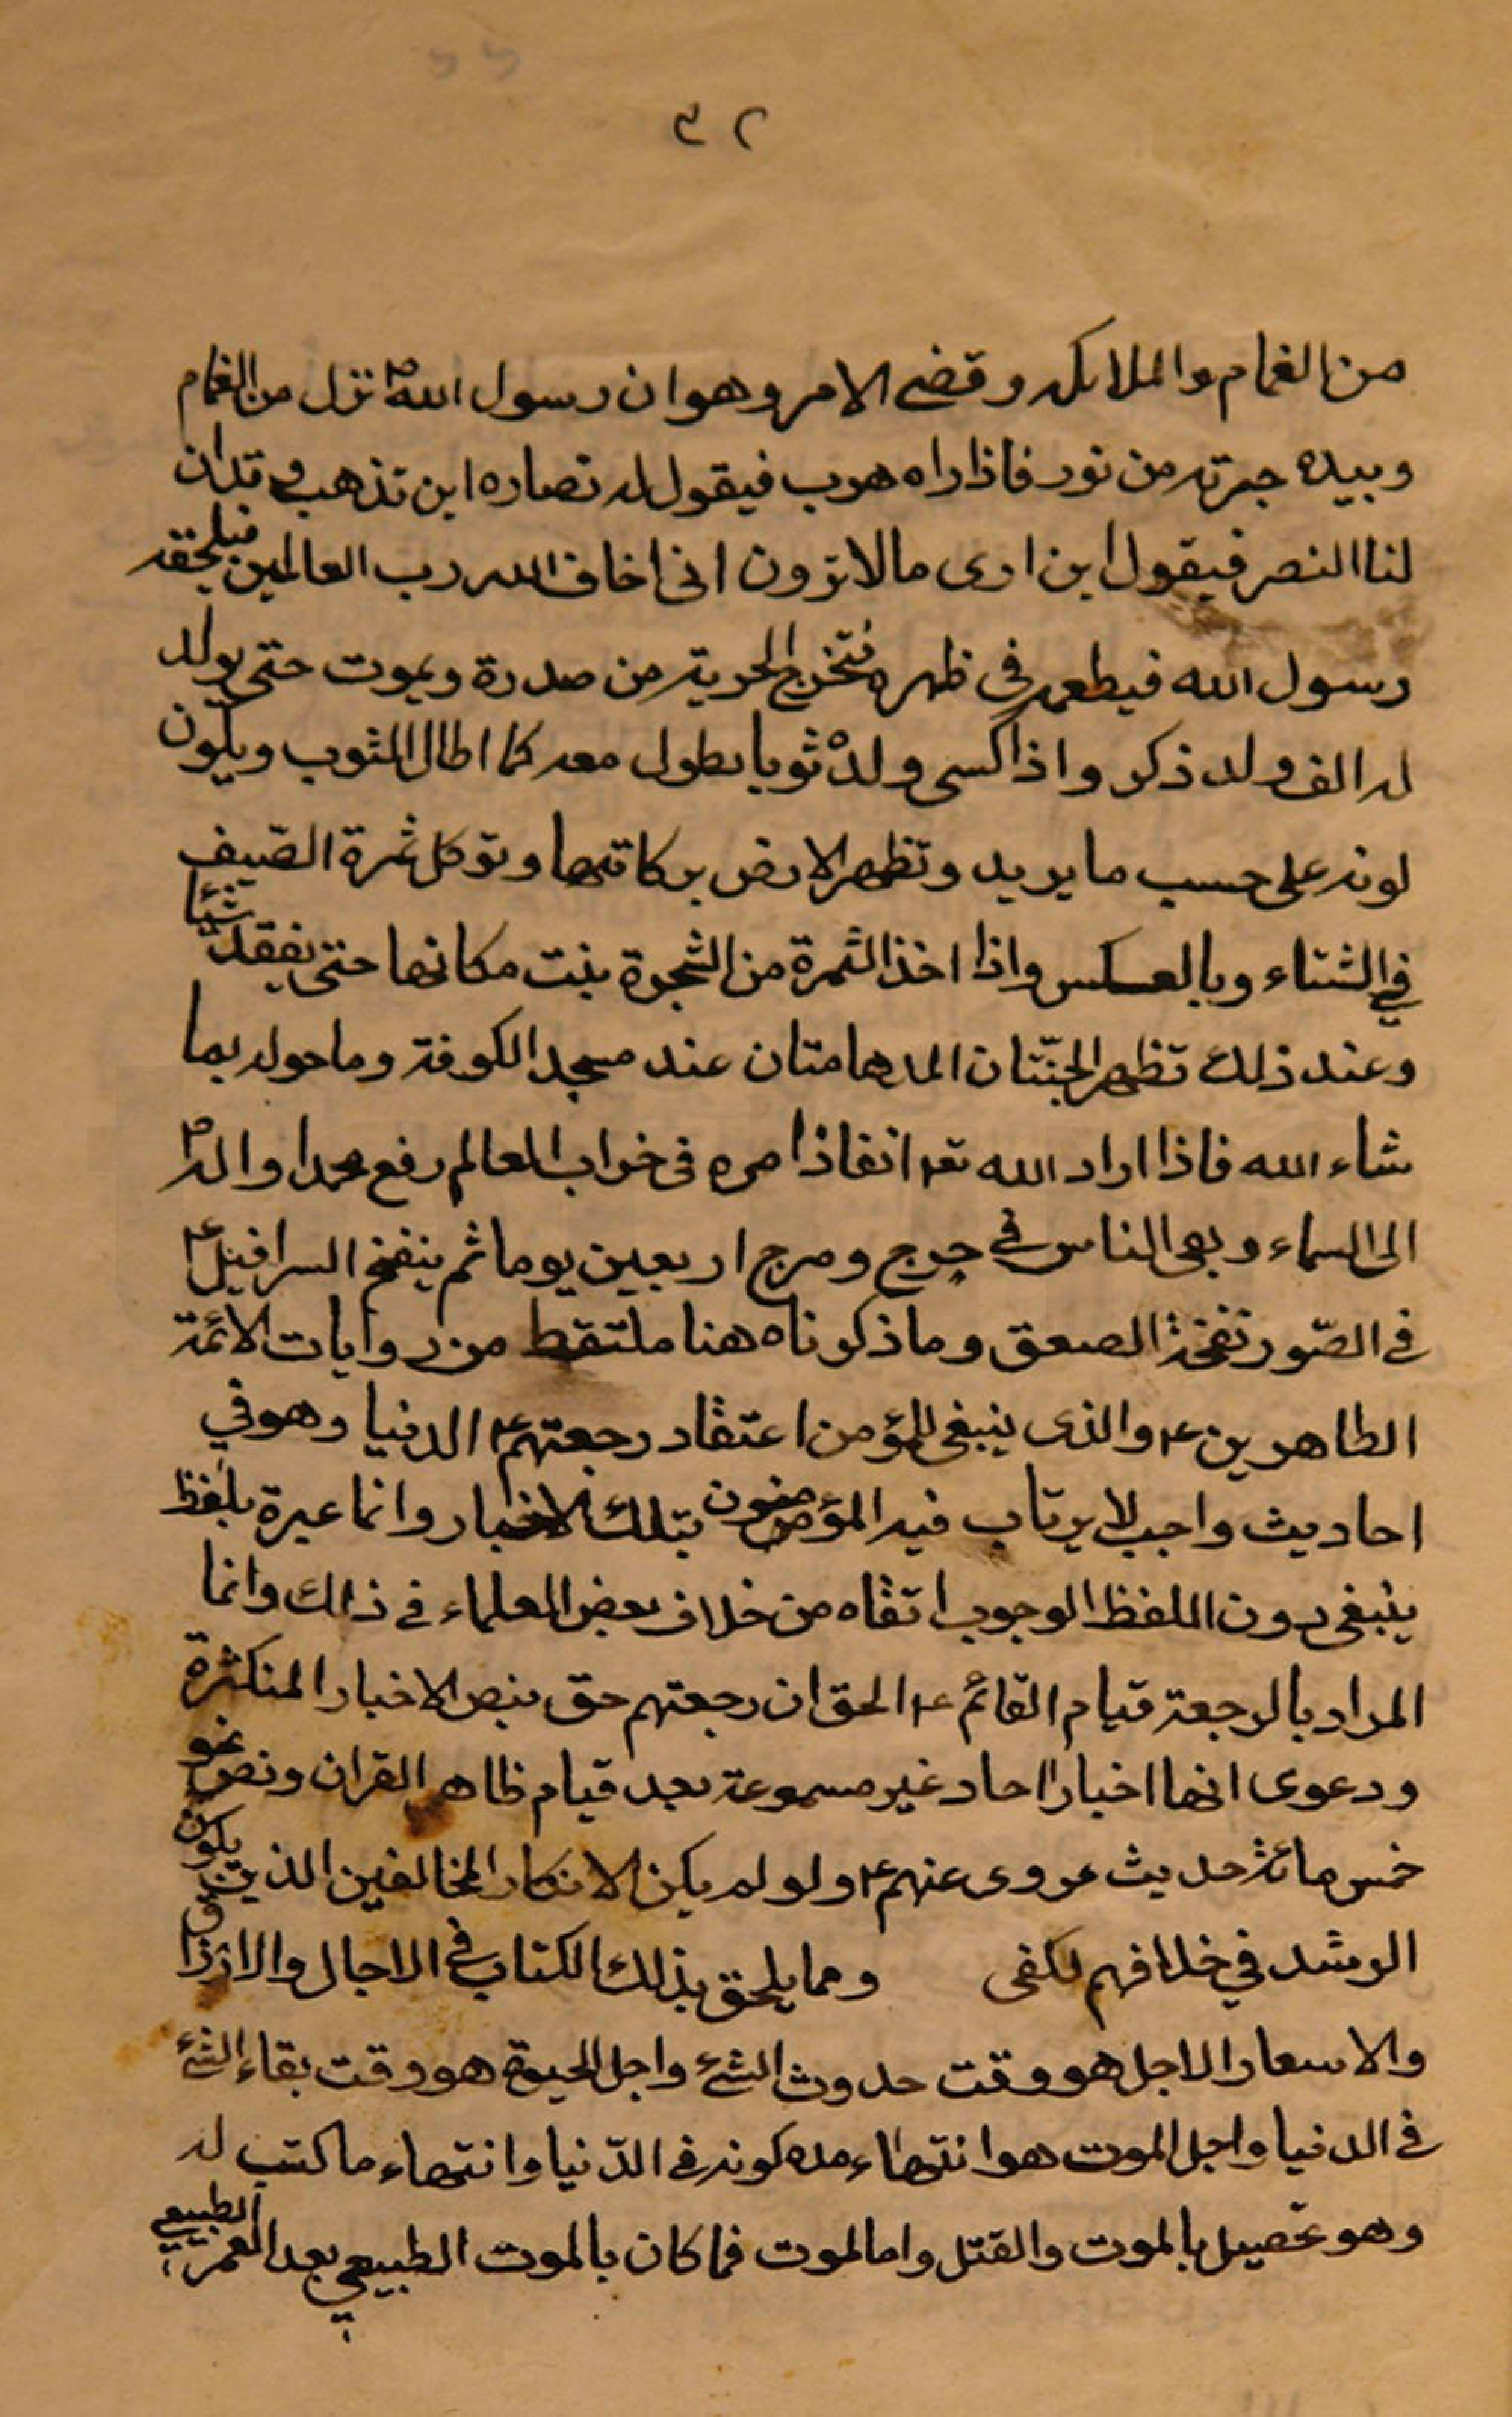 ٣٢
من الغمام والملائكه وقضى الامر وهو ان رسول الله ص نزل من الغمام
وبيده حربته من نور فاذا راه هرب فيقول له انصاره اين تذهب وقد ان
لنا النصر فيقول اين ارى مالا ترون انى اخاف الله رب العالمين فيلحقه
رسول الله فيطعنه فى ظهره فتخرج الحربة من صدرة ويموت حتى يولد
له الف ولد ذكر واذا اكسى ولده ثوبا يطول معه كلما اطال الثوب ويكون
لونه على حسب ما يريد وتظهر الارض بركاتها وتوكل ثمرة الصّيف
في الشتاء وبالعسكس واذا اخذ الثمرة من الشجرة ينبت مكانها حتى يفقد شيئا
وعند ذلك تظهر الجنّتان المدهامتان عند مسجد الكوفة وما حوله بما
شاء الله فاذا اراد الله تعه انفاذ امره فى خراب العالم رفع محمدا واله ص
الى السماء وبقى الناس في جرج ومرج اربعين يوما ثم ينفخ السرافيل ع
في الصّور نفخة الصعق وما ذكوناه هنا ملتقط من روايات الائمة
الطاهرين ع والذى ينبغى للمؤمن اعتقاد رجعتهم ع الدنيا وهو في
احاديث واجب لا يرتاب فيه المؤمنون بتلك الاخبار وانما عبرة بلفظ
ينبغى دون اللفظ الوجوب اتقاه من خلاف بعض العلماء في ذالك وانما
المراد بالرجعة قيام القائم ع الحق ان رجعتهم حق بنص الاخبار المتكثرة
ودعوى انها اخبارا احاد غير مسموعة بعد قيام ظاهر القران ونص نحو
خمس مائة حديث مروى عنهم ع ولو لم يكن الا انكار المخالفين الذين يكون
الرشد في خلافهم لكفى ومما يلحق بذلك الكتاب في الاجال والارزاق
والاسعار الاجل هو وقت حدوث الشئ واجل الحيوة هو وقت بقاء الشئ
في الدنيا واجل الموت هو انتهاء مده كونه في الدّنيا وانتهاء ما كتب له
وهو تحصيل بالموت والقتل واما الموت فما كان بالموت الطبيعي بعد العمر الطبيعي